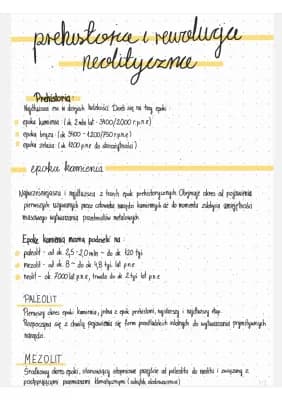 prehistoria i rewolucja
neolityczna
Prehistoria:
Najdłuższa era w dziejach ludzkości. Dzieli się na trzy epoki:
epoka kamienia (ok. 2mln lat - 3400/2000 r.p.n.e)
epoka brązu (ok 3400 - 1200/750 r.p.n.e)
epoka żelaza (ok 1200 p.n.e do starożytności)
epoka kamienia
Najwcześniejsza i najdłuższa z trzech epok prehistorycznych. Obejmuje okres od pojawienia
pierwszych używanych przez człowieka narzędzi kamiennych aż do momentu zdobycia umiejętności
masowego wytwarzania przedmiotów metalowych.
Epokę kamienia mamy podzielić na:
paleolit - od ok. 2,5-2,0 mln - do ok. 120 tyś
mezolit - od ok. 8 - do ok 4,8 tyś. lat p.n.e
neolit - ok. 7000 lat p.n.e, trwała do ok 2 tyś lat p.n.e
PALEOLIT
Pierwszy okres epoki kamienia, jedna z epok prehistorii, najstarszy i najdłuższy etap.
Rozpoczęła się z chwilą pojawienia się form przedludzkich zdolnych do wytwarzania prymitywnych
narzędzi.
MEZOLIT
Środkowy okres epoki, stanowiący stopniowe przejście od paleolitu do neolitu i związany z
postępującymi przemianami klimatycznymi